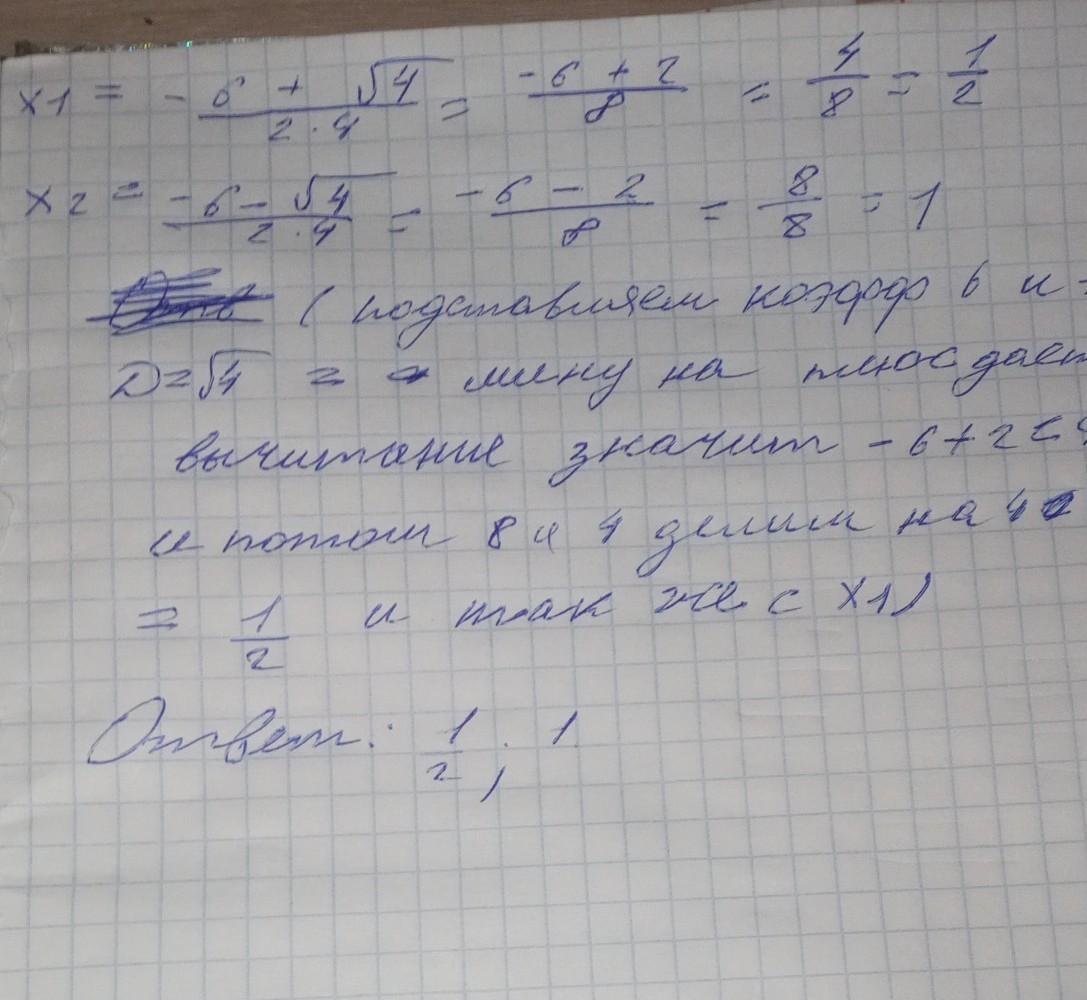 x1 = - 6 + √4 / 2 · 4 = -6 + 2 / 8 = 4/8 = 1/2
x2 = -6 - √4 / 2 · 4 = -6 - 2 / 8 = 8/8 = 1
( подставляем коэфф 6 и
D=√4 = мину на плюс дает
вычитание значит -6+2=4
и потом 8 и 4 делим на 4
= 1/2 и так же с x1)
Ответ: 1/2 ; 1.